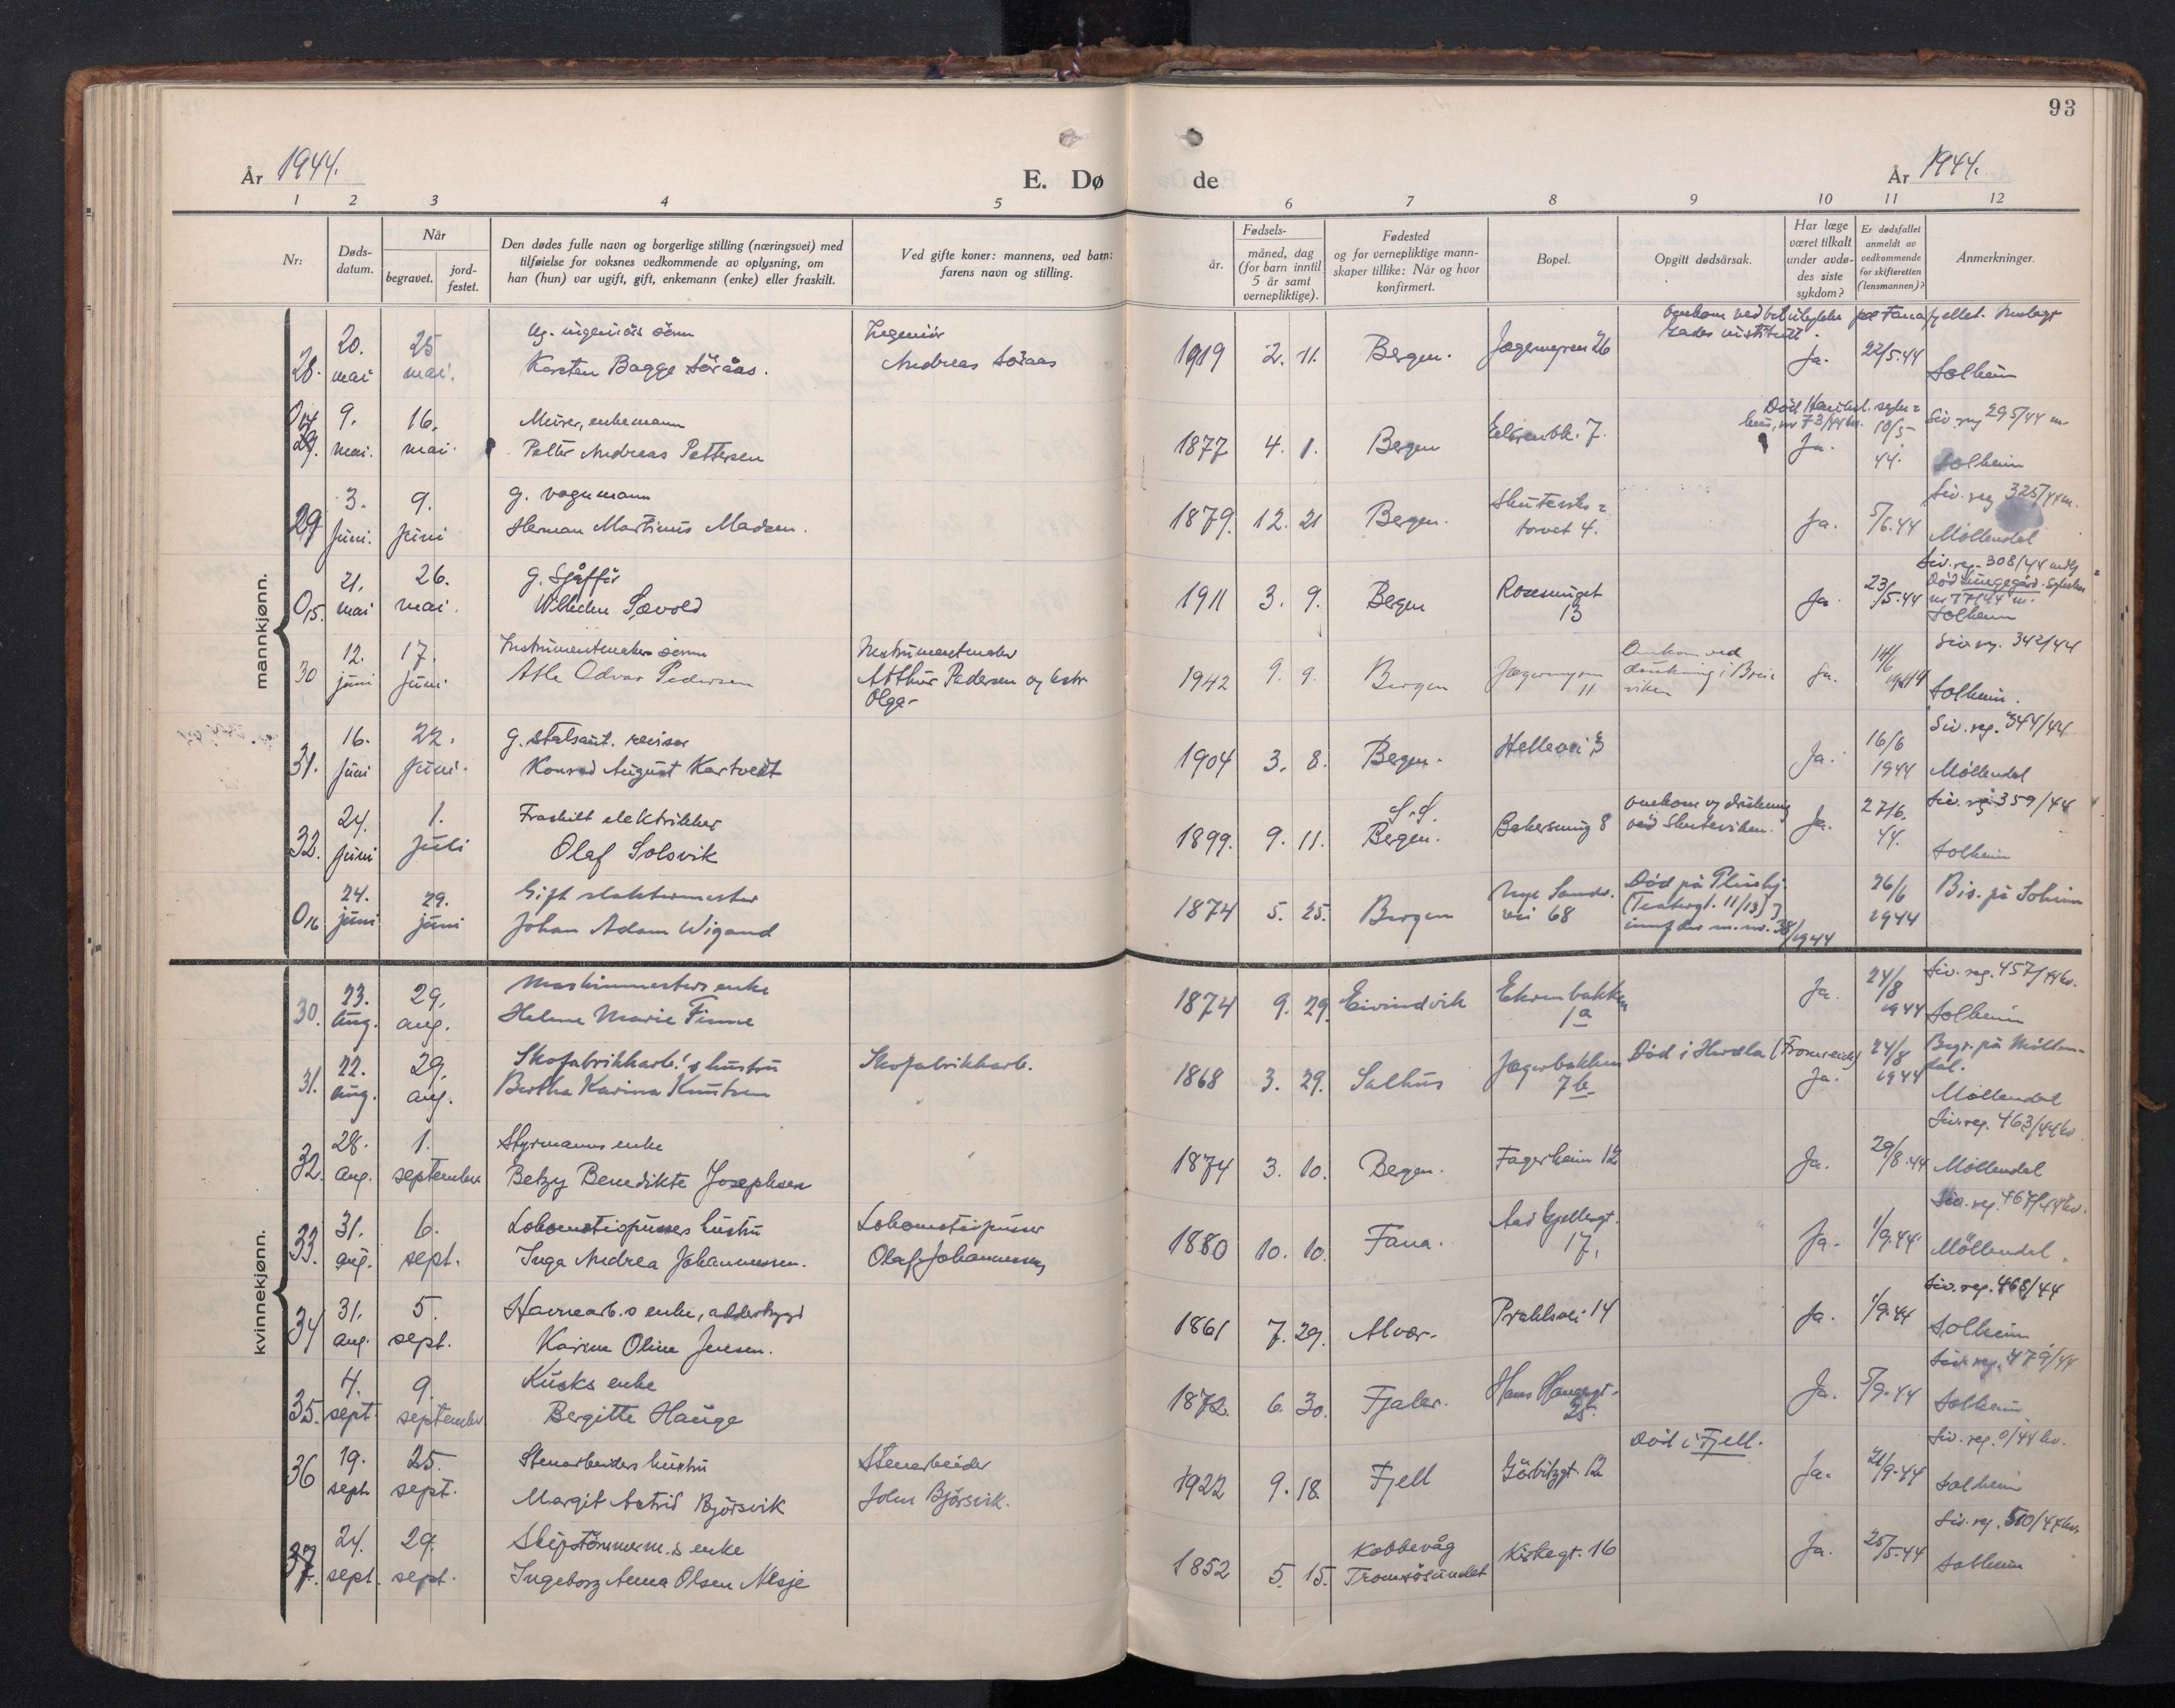 93
År 1944.
E. Dø
de
År 1944.
1 2 3 4 5 6 7 8 9 10 11 12
Nr:
Døds-
datum.
Når
begravet.
jord-
festet.
Den dødes fulle navn og borgerlige stilling (næringsvei) med
tilføielse for voksnes vedkommende av oplysning, om
han (hun) var ugift, gift, enkemann (enke) eller fraskilt.
Ved gifte koner: mannens, ved barn:
farens navn og stilling.
Fødsels-
år.
måned, dag
(for barn inntil
5 år samt
vernepliktige).
Fødested
og for vernepliktige mann-
skaper tillike: Når og hvor
konfirmert.
Bopel.
Opgitt dødsårsak.
Har læge
været tilkalt
under avdø-
des siste
sykdom?
Er dødsfallet
anmeldt av
vedkommende
for skifteretten
(lensmannen)?
Anmerkninger.
mannkjønn.
28. 20. mai 25 mai.
Ug. ingeniørs sønn
Karsten Bagge Söråas.
Ingeniör
Andreas Söraas
1919 2. 11. Bergen. Jægermyren 26
Omkom ved på Fanafjellet.
Ja. 22/5.44 Solheim
9. mai. 16. mai.
Murer, enkemann
Petter Andreas Pettersen
1877 4. 1. Bergen 7.
Ja. 10/5 44.
Siv. reg 295/44 m.
Solheim
29 3. Juni. 9. juni
g. vognmann
Herman Martinus Madsen.
1879. 12. 21 Bergen.
torvet 4.
Ja. 5/6.44
Siv. reg 325/44 m.
Möllendal
O15. 21. mai 26. mai.
g. Sjåffør
Wilhelm Sævold
1911 3. 9. Bergen Rosesmuget
13
Ja. 23/5.44
Siv. reg. 308/44
Solheim
30 12. juni 17. Juni
Instrumentmakers sønn
Atle Odvar Pedersen
Instrumentmaker
Arthur Pedersen og hstr
Olga
1942 9. 9. Bergen Jægermyren
11
Omkom ved
drukning i Brei-
viken
Ja. 14/6 1944
Siv. reg. 342/44
Solheim.
31. 16. juni 22. juni.
g. statsaut. revisor
Konrad August Kartveit
1904 3. 8. Bergen. Hellevei 3
Ja. 16/6 1944
Siv. reg. 344/44
Möllendal
32. 24. juni 1. juli
Fraskilt elektrikker
Olaf Solsvik
1899. 9. 11. Bergen. Bakersmug 8
omkom og drukning
ved Skuteviken.
Ja. 27/6. 44.
Siv. reg. 359/44
Solheim
O16 24. juni 29. juni
Gift slaktermester
Johan Adam Wigand
1874 5. 25. Bergen Nye Sandv.
vei 68
Død på Pleiehj.
(Teatergt. 11/13)
innf. des m. nr. 38/1944
26/6 1944
Bis. på Solheim
kvinnekjønn.
30. 23. aug. 29. aug.
Maskinmesters enke
Helene Marie Finne
1874 9. 29. Eivindvik Ekrenbakken
1a
Ja. 24/8 1944
Siv. reg. 457/44 kv.
Solheim
31. 22. aug. 29. aug.
Skofabrikkarb.'s hustru
Bertha Karina Knutsen
Skofabrikkarb.
1868 3. 29. Salhus Jægerbakken
7b
Død i Herdla
Ja. 24/8 1944
Begr. på Möllen-
dal.
Möllendal
32. 28. aug. 1. september
Styrmanns enke
Betzy Benedikte Josephsen
1874 3. 10. Bergen. Fagerheim 12
Ja. 29/8.44
Siv. reg. 463/44 kv.
Möllendal
33. 31. aug. 6. sept.
Lokomotivpussers hustru
Inga Andrea Johannessen.
Lokomotivpusser
Olaf Johannessen
1880 10. 10. Fana.
17.
Ja. 1/9.44
Siv. reg. 467/44 kv.
Möllendal.
34 31. aug. 5. sept.
Havnearb.s enke, alderstrygd
Karine Oline Jensen.
1861 7. 29. Alver. Prahlsvei 14
Ja. 1/9.44
Siv. reg. 468/44
Solheim
35. 4. sept. 9. september
Kusks enke
Bergitte Hauge
1872. 6. 30. Fjaler. Hans Haugesgt.
25.
Ja. 5/9.44
Siv. reg. 479/44
Solheim
36 19. sept 25. sept.
Stenarbeiders hustru
Margit Astrid Björsvik
Stenarbeider
John Björsvik.
1922 9. 18. Fjell Görbitzgt. 12
Död i Fjell.
Ja. 21/9.44
Siv. reg. 0/44 kv.
Solheim
37. 24. sept. 29. sept.
Skipstömmerm.s enke
Ingeborg Anna Olsen Nesje
1852 5. 15. Kobbevåg
Tromsøsundet
Kirkegt. 16
Ja. 25/5.44
Siv. reg. 510/44 kv.
Solheim